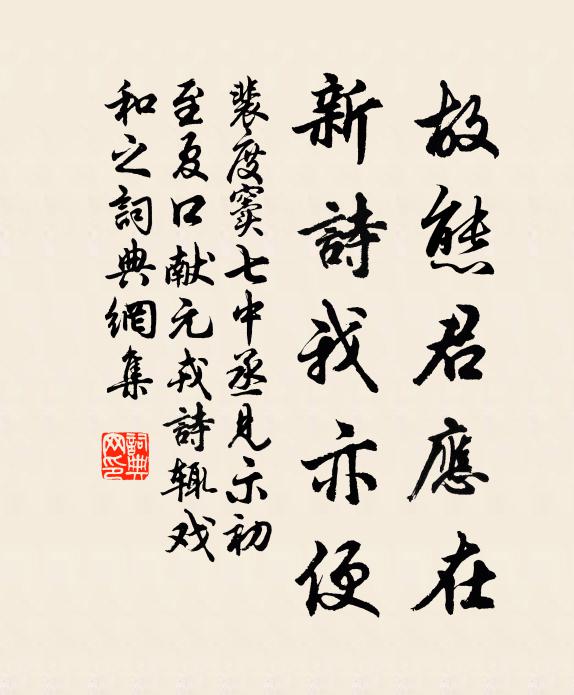 故態君應在
新詩我亦便
裴度窦七中丞見示初
至夏口献元戎詩辄戏
和之詞典網集
詞典
网印